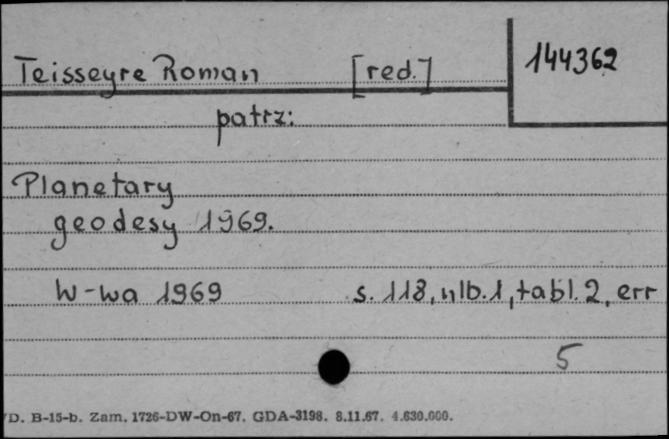 Teisseyre Roman [red.] 144362
patrz:
Planetary
geodesy 1969.
W-wa 1969 s. 118, nlb. 1, tabl. 2, err
5
D. B-15-b. Zam. 1726-DW-On-67. GDA-3198. 8.11.67. 4.630.000.